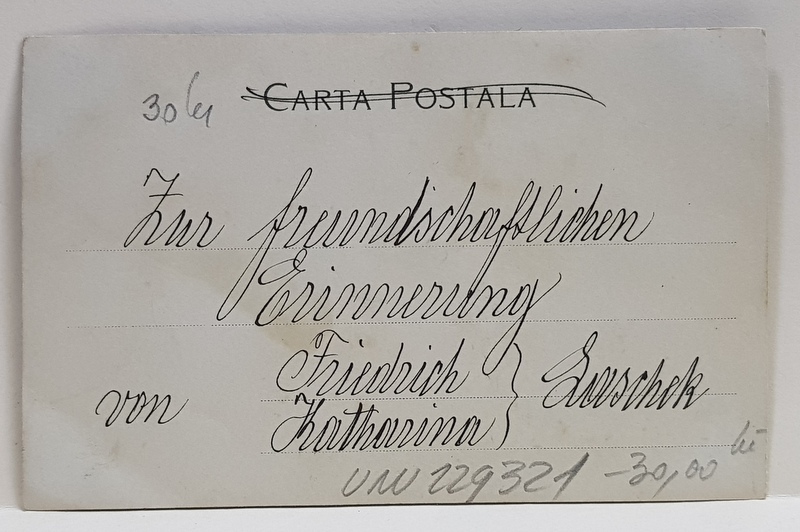 30 lei
CARTA POSTALA
Zur freundschaftlichen
Erinnerung
von Friedrich Katharina } Laschek
UNU 229321 -30,00 lei